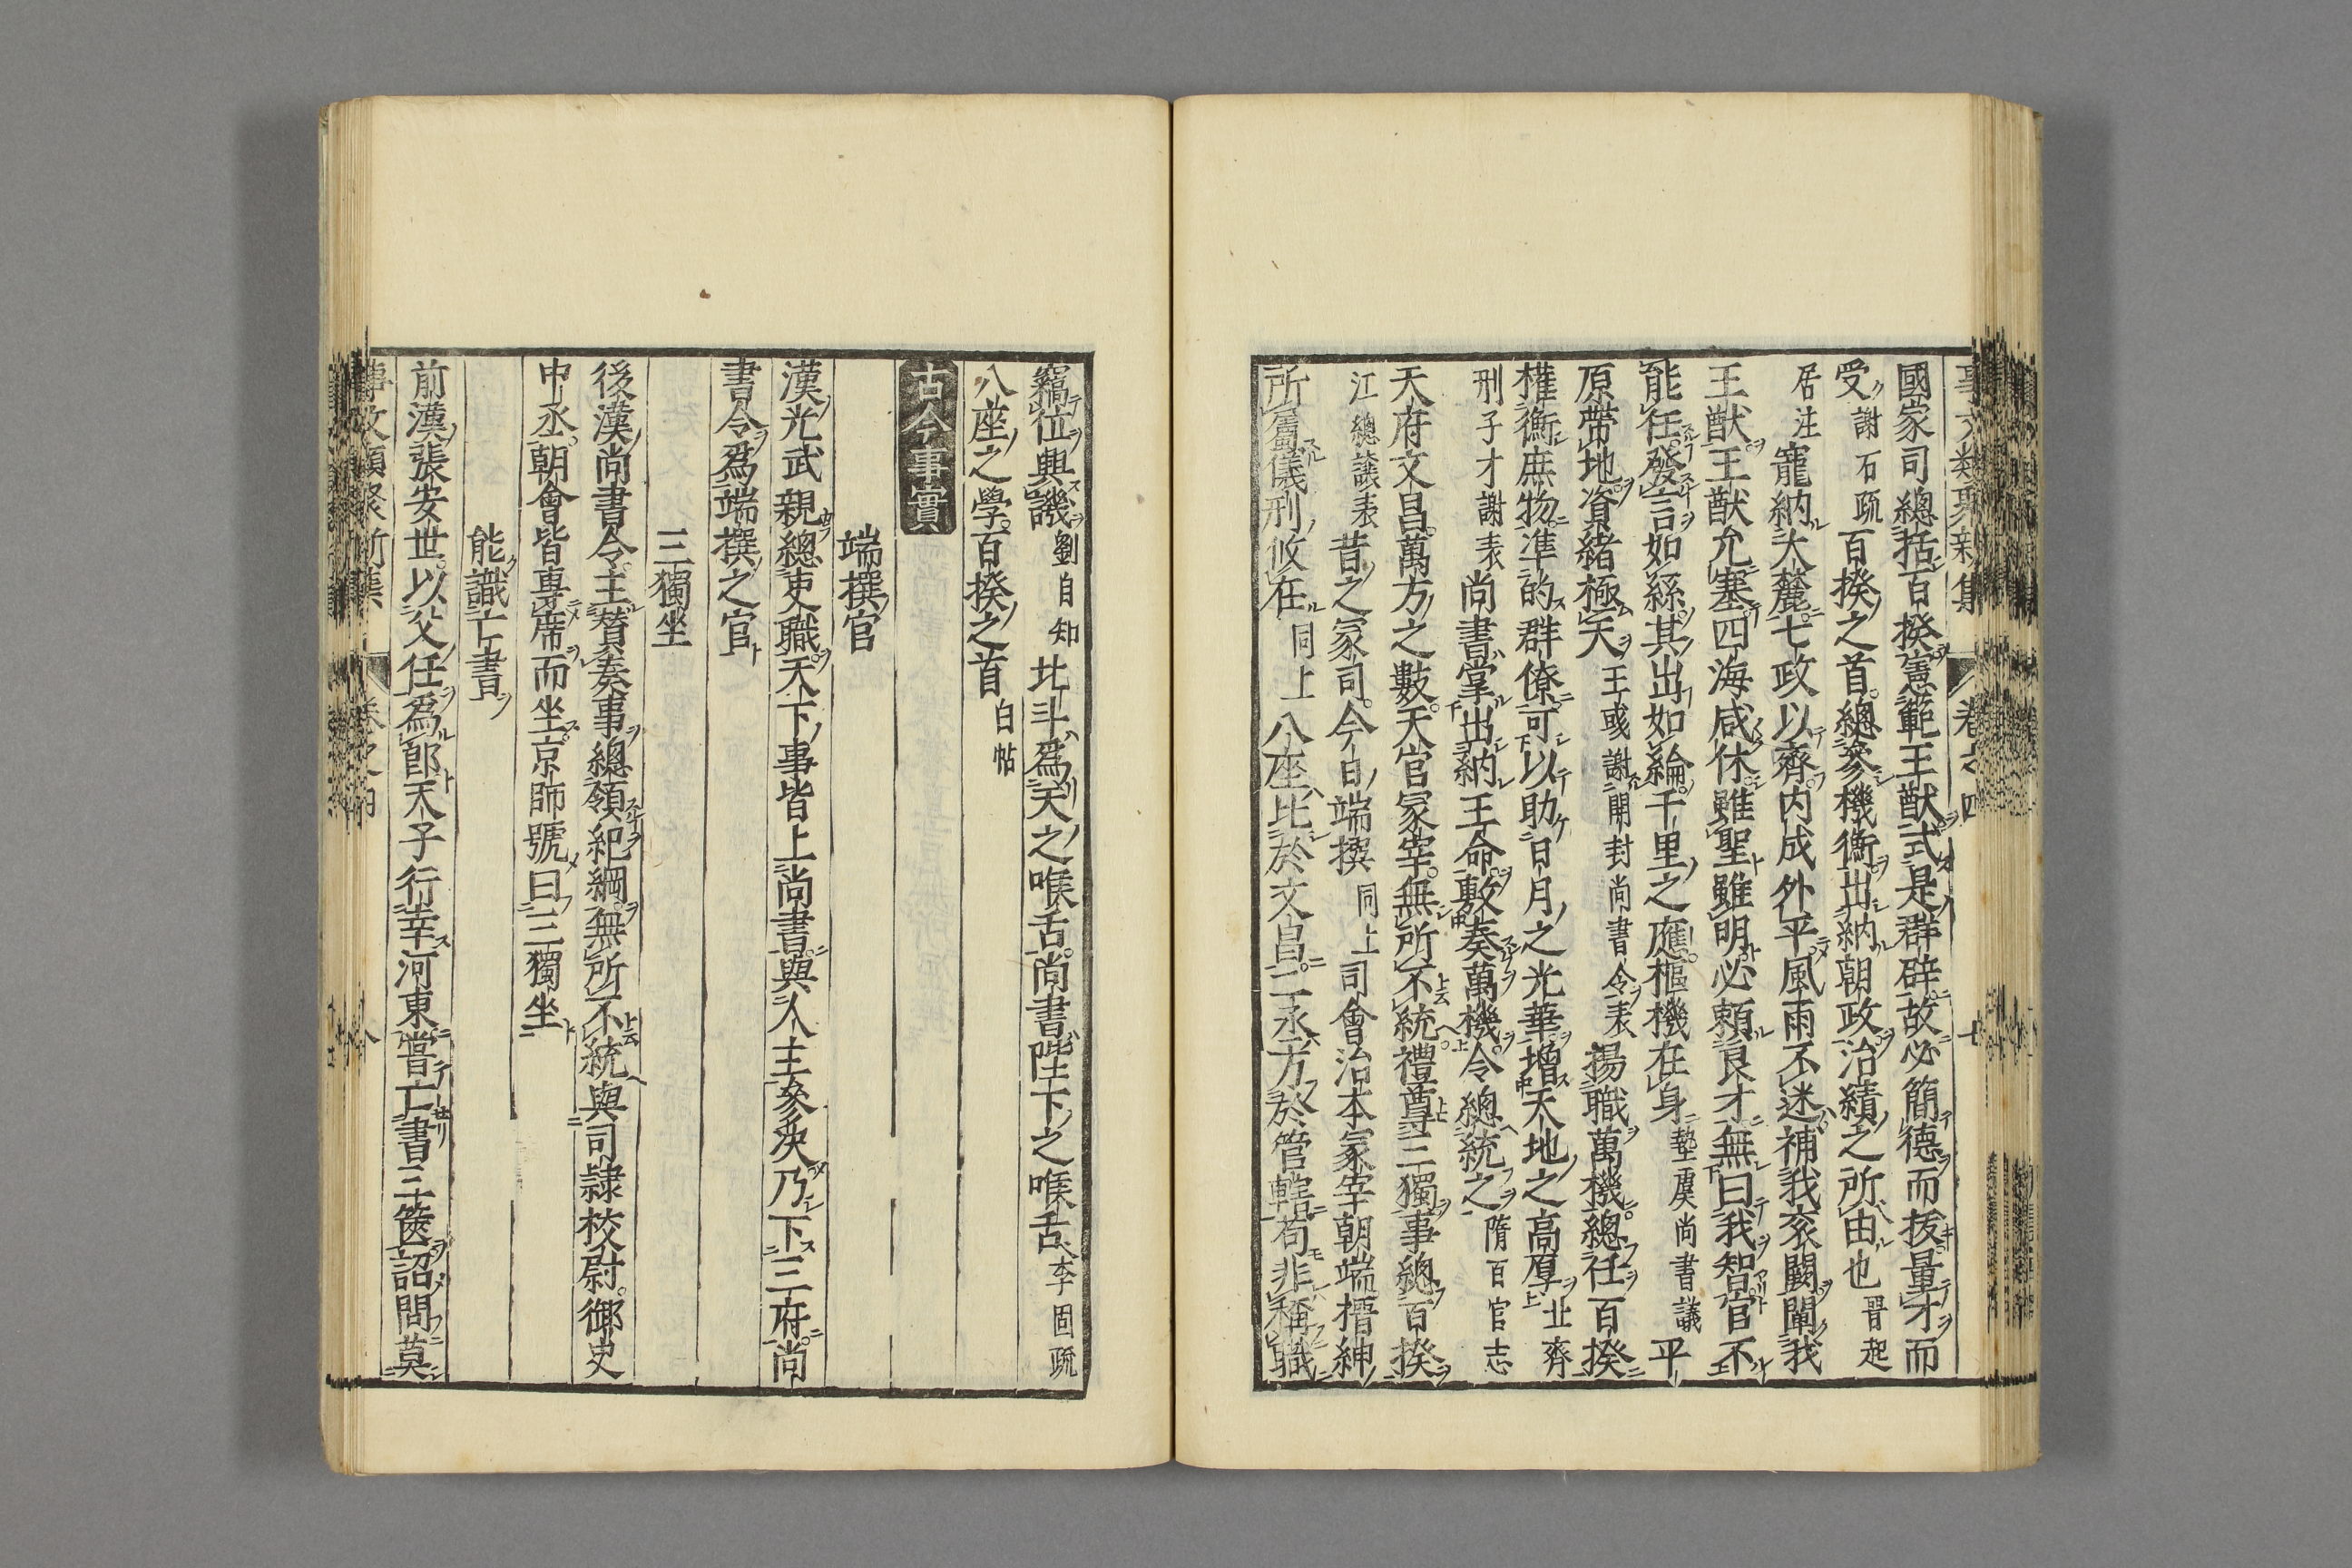 事文類聚新集 卷之四 十
國家司總括百揆憲範王猷式是群辟故必簡德而拔量才而
受謝石疏百揆之首總參機衡出納朝政治績之所由也晋起
居注寵納大麓七政以齊內成外平風雨不迷補我袞闕闡我
王猷王猷允塞四海咸休雖聖雖明必頼良才無曰我智官不
能任發言如絲其出如綸千里之應樞機在身塾虞尚書議平
原帶地資緒極天王彧謝開封尚書令表揚職萬機總任百揆
權衡庶物準的群僚可以助日月之光華增天地之高厚北齊
刑子才謝表尚書掌出納王命敷奏萬機令總統之隋百官志
天府文昌萬方之數天官冢宰無所不統禮尊三獨事總百揆
江總讓表昔之冢司今曰端揆同上司會治本冢宰朝端搢紳
所屬儀刑攸在同上八座比於文昌二丞方於管轄苟非稱職
竊位興譏劉自知北斗爲天之喉舌尚書陛下之喉舌李固疏
八座之學百揆之首白帖
古今事實
端揆官
漢光武親總吏職天下事皆上尚書與人主參决乃下三府尚
書令爲端揆之官
三獨坐
後漢尚書令主賛奏事總領紀綱無所不統與司隷校尉御史
中丞朝會皆專席而坐京師號曰三獨坐
能識亡書
前漢張安世以父任爲郎天子行幸河東嘗亡書三篋詔問莫